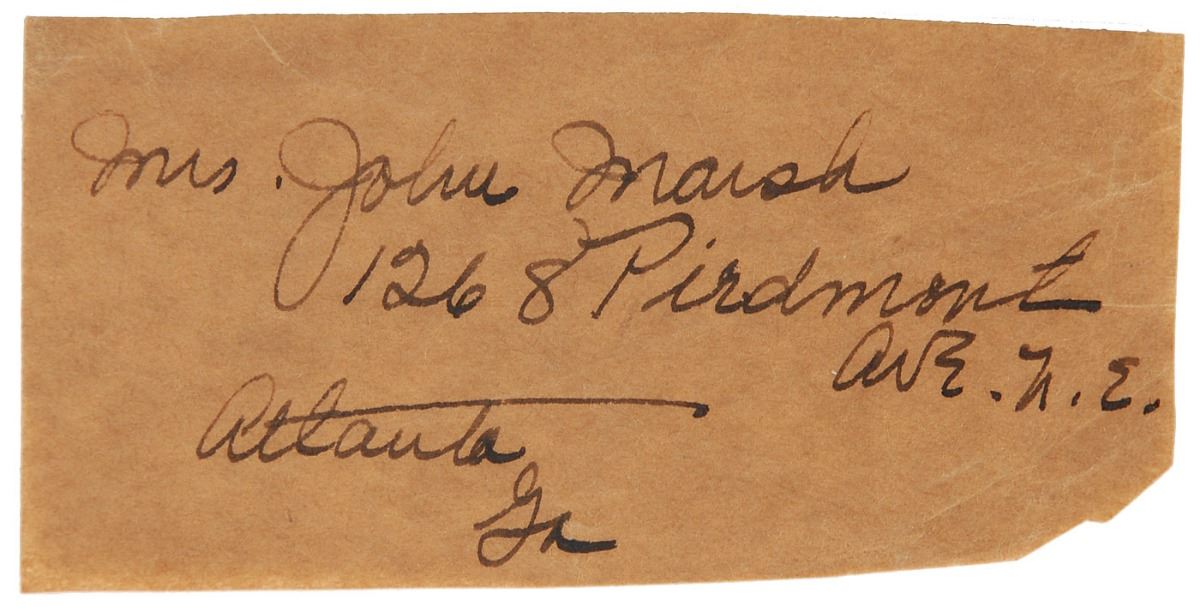 Mrs. John Marsh
1268 Piedmont
Ave. N.E.
Atlanta
Ga